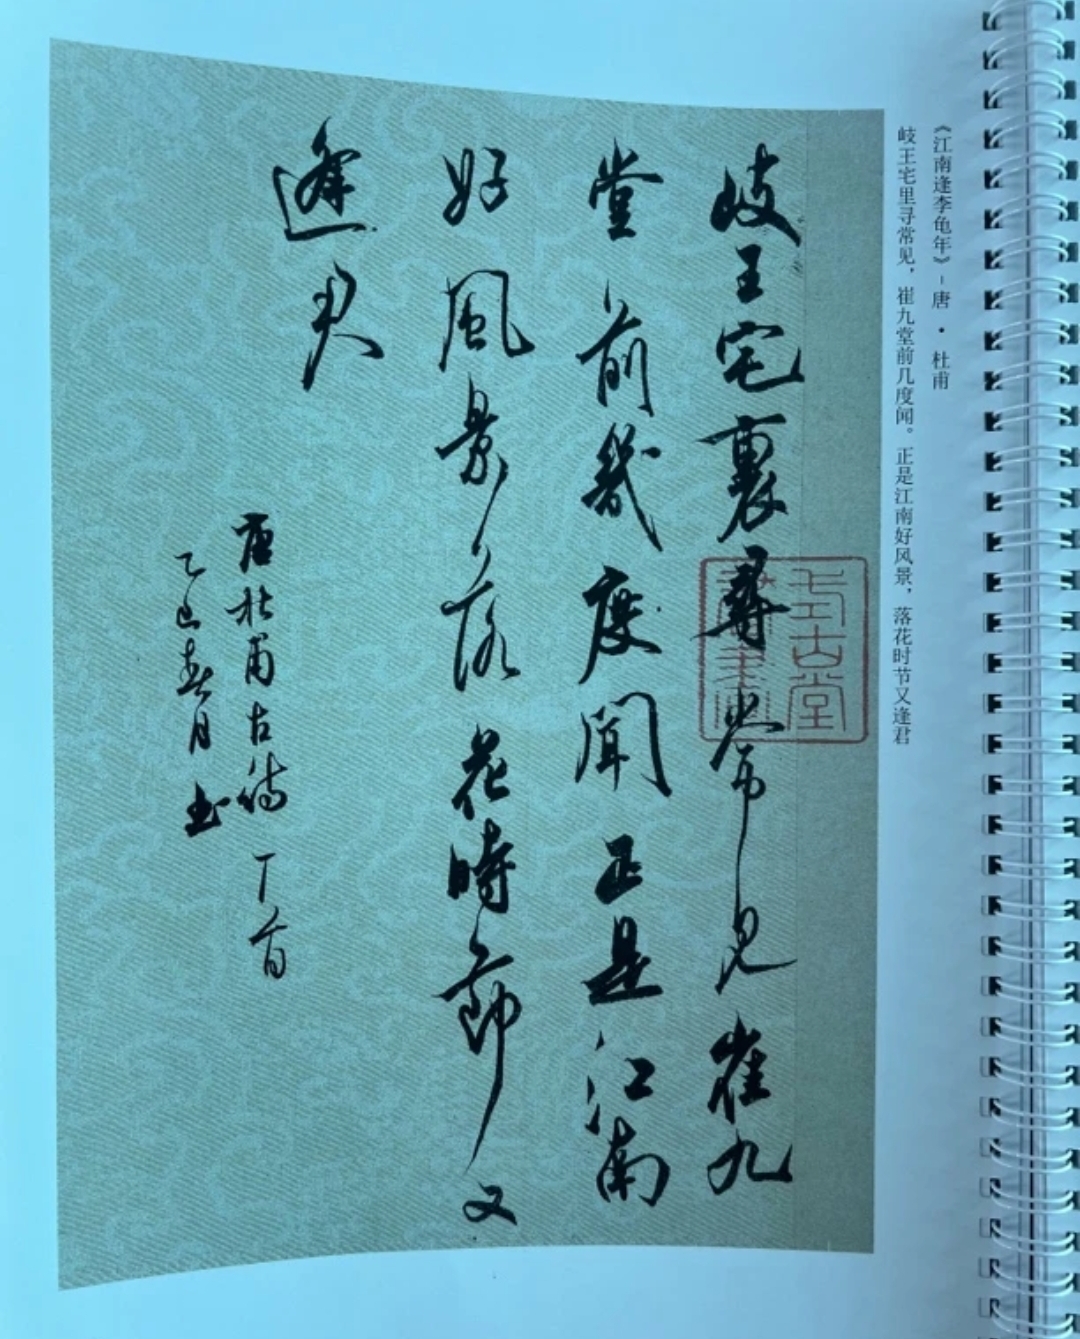 《江南逢李龟年》-唐·杜甫
岐王宅里寻常见，崔九堂前几度闻。正是江南好风景，落花时节又逢君
岐王宅裏尋常見崔九
堂前幾度聞正是江南
好風景落花時節又
逢君
唐杜甫古詩一首
乙巳春月書